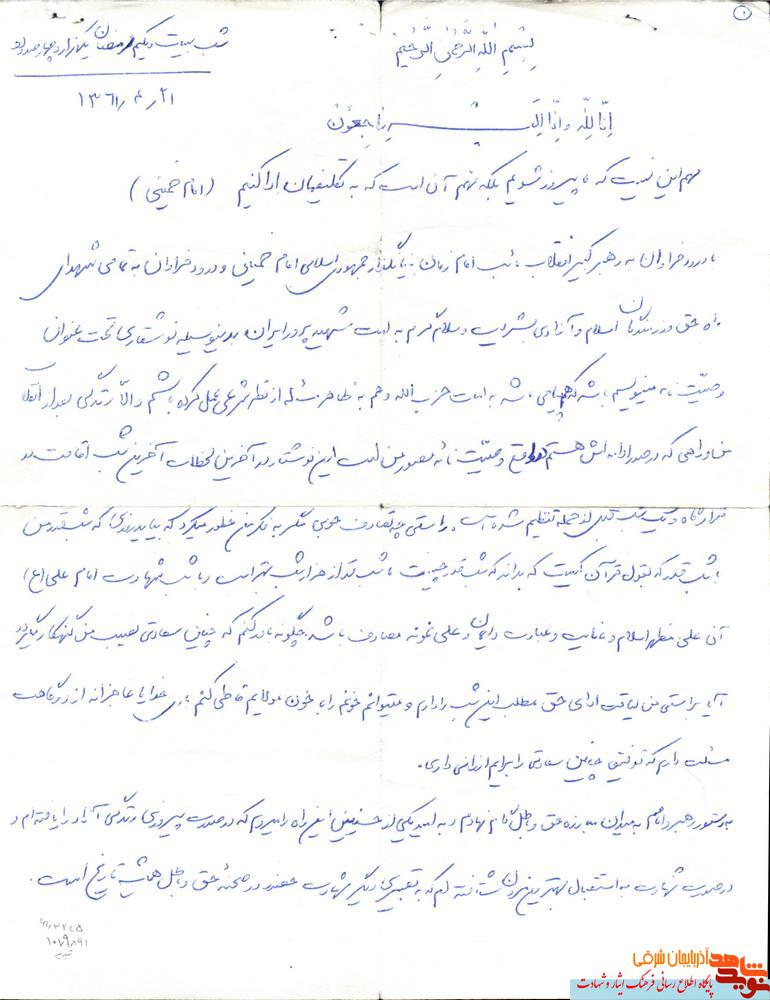 ۱
بِسْمِ اللّهِ الرَّحْمٰنِ الرَّحیمْ
شب بیست و یکم رمضان یکهزار و چهارصد و دو
۲۱ر۴ر۱۳۶۱
اِنّا لِلّه وَ اِنّا اِلَیْهِ راجِعُونْ
مهم این نیست که ما پیروز شویم بلکه مهم آن است که به تکلیفمان ادا کنیم (امام خمینی)
با درود فراوان به رهبر کبیر انقلاب نائب امام زمان بنیانگذار جمهوری اسلامی امام خمینی و درود فراوان به تمامی شهدای
راه حق و رزمندگان اسلام و آزادی بشریت و سلام گرم به امت شهید پرور ایران بدینوسیله نوشتاری تحت عنوان
وصیّت نامه مینویسم باشد که هم پیامی باشد به امت حزب الله و هم به ظاهر از نظر شرعی عمل کرده باشم و الّا زندگی بعد از انقلاب
من و راهی که در صدد ادامه اش هستم در واقع وصیّت نامه مصور من است این نوشتار در آخرین لحظات آخرین شب اقامت در
قرارگاه و یک شب قبل از حمله تنظیم شده است. راستی چه تصادف خوبی مگر به فکر من خطور میکرد که بیاید روزی که شب قدر من
با شب قدر که بقول قرآن کیست که بداند که شب قدر چیست با شب قدر از هزار شب بهتر است و با شب شهادت امام علی (ع)
آن علی مظهر اسلام و عنایت و عبادت و ایمان و علی نمونه مصادف باشد. چگونه باور کنم که چنین سعادتی نصیب من گنهکار میگردد
آیا براستی من لیاقت ادای حق مطلب این شب را دارم و میتوانم خونم را با خون مولایم قاطی کنم خدایا عاجزانه از درگاهت
مسئلت دارم که توفیق چنین سعادتی را برایم ارزانی داری.
به دستور رهبر و امامم به میدان مبارزه حق و باطل گام نهادم و به امید یکی از حسنیین این راه را میروم که در صورت پیروزی زندگی آزاد را یافته ام و
در صورت شهادت به استقبال بهترین مردن شتافته ام که به تعبیری دیگر شهادت حضور در صحنهٔ حق و باطل همیشه تاریخ است.
۱۰۷۹۸۹۱
نوید شاهد آذربایجان شرقی
پایگاه اطلاع رسانی فرهنگ ایثار و شهادت